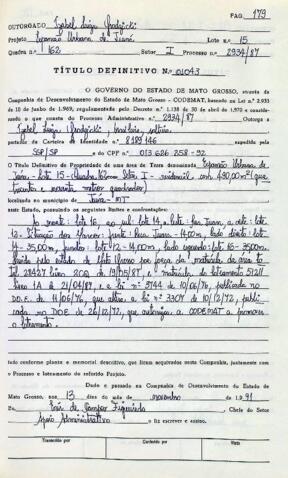 PAG. 179
OUTORGADO Izabel Luiza Grodzicki
Projeto Expansão Urbana de Juara Lote n.º 15
Quadra n.º 162 Setor I Processo n.º 2934/87
TÍTULO DEFINITIVO N.º 01043
O GOVERNO DO ESTADO DE MATO GROSSO, através da
Companhia de Desenvolvimento do Estado de Mato Grosso - CODEMAT, baseado na Lei n.º 2.933
de 10 de junho de 1.969, regulamentada pelo Decreto n.º 1.138 de 30 de abril de 1.970 e considerando
o que consta do Processo Administrativo n.º 2934/87 Outorga a
Izabel Luiza Grodzicki, brasileira, solteira
portador da Carteira de Identidade n.º 8189146 expedida pela
SSP/SP e do CPF n.º 013 626 258-92
O Título Definitivo de Propriedade de uma área de Terra denominada Expansão Urbana de
Juara - lote 15 - Quadra 162 setor I - residencial com 490,00 m² (quatrocentos e noventa metros quadrados)
localizada no município de Juara - MT
neste Estado, possuindo os seguintes limites e confrontações:
Ao norte: lote 16, ao sul: lote 14, a leste: Rua Juara, a oeste: lote
12. frente: Rua Juara - 14,00m, lado direito: lote
14 - 35,00m, fundos: lote 12 - 14,00m, lado esquerdo: lote 16 - 35,00m.
matrícula da área to
tal 21427 livro 2CQ de 19/05/87, e matrícula do loteamento 51211
livro 1A de 21/04/87, e a lei nº 3744 de 10/06/76, publicada no
D.O.E. de 11/06/76, que altera a lei nº 3307 de 10/12/72, publi
cada no DOE de 26/12/72, que autoriza a CODEMAT a promover
o loteamento.
tudo conforme planta e memorial descritivo, que ficam arquivados nesta Companhia, juntamente com
o Processo e loteamento do referido Projeto.
Dado e passado na Companhia de Desenvolvimento do Estado de
Mato Grosso, aos 13 dias do mês de novembro de 1.991
Eu de Campos Figueiredo, Chefe do Setor
Apoio Administrativo o fiz escrever e assino.
Transcrito por Conferido por Visto